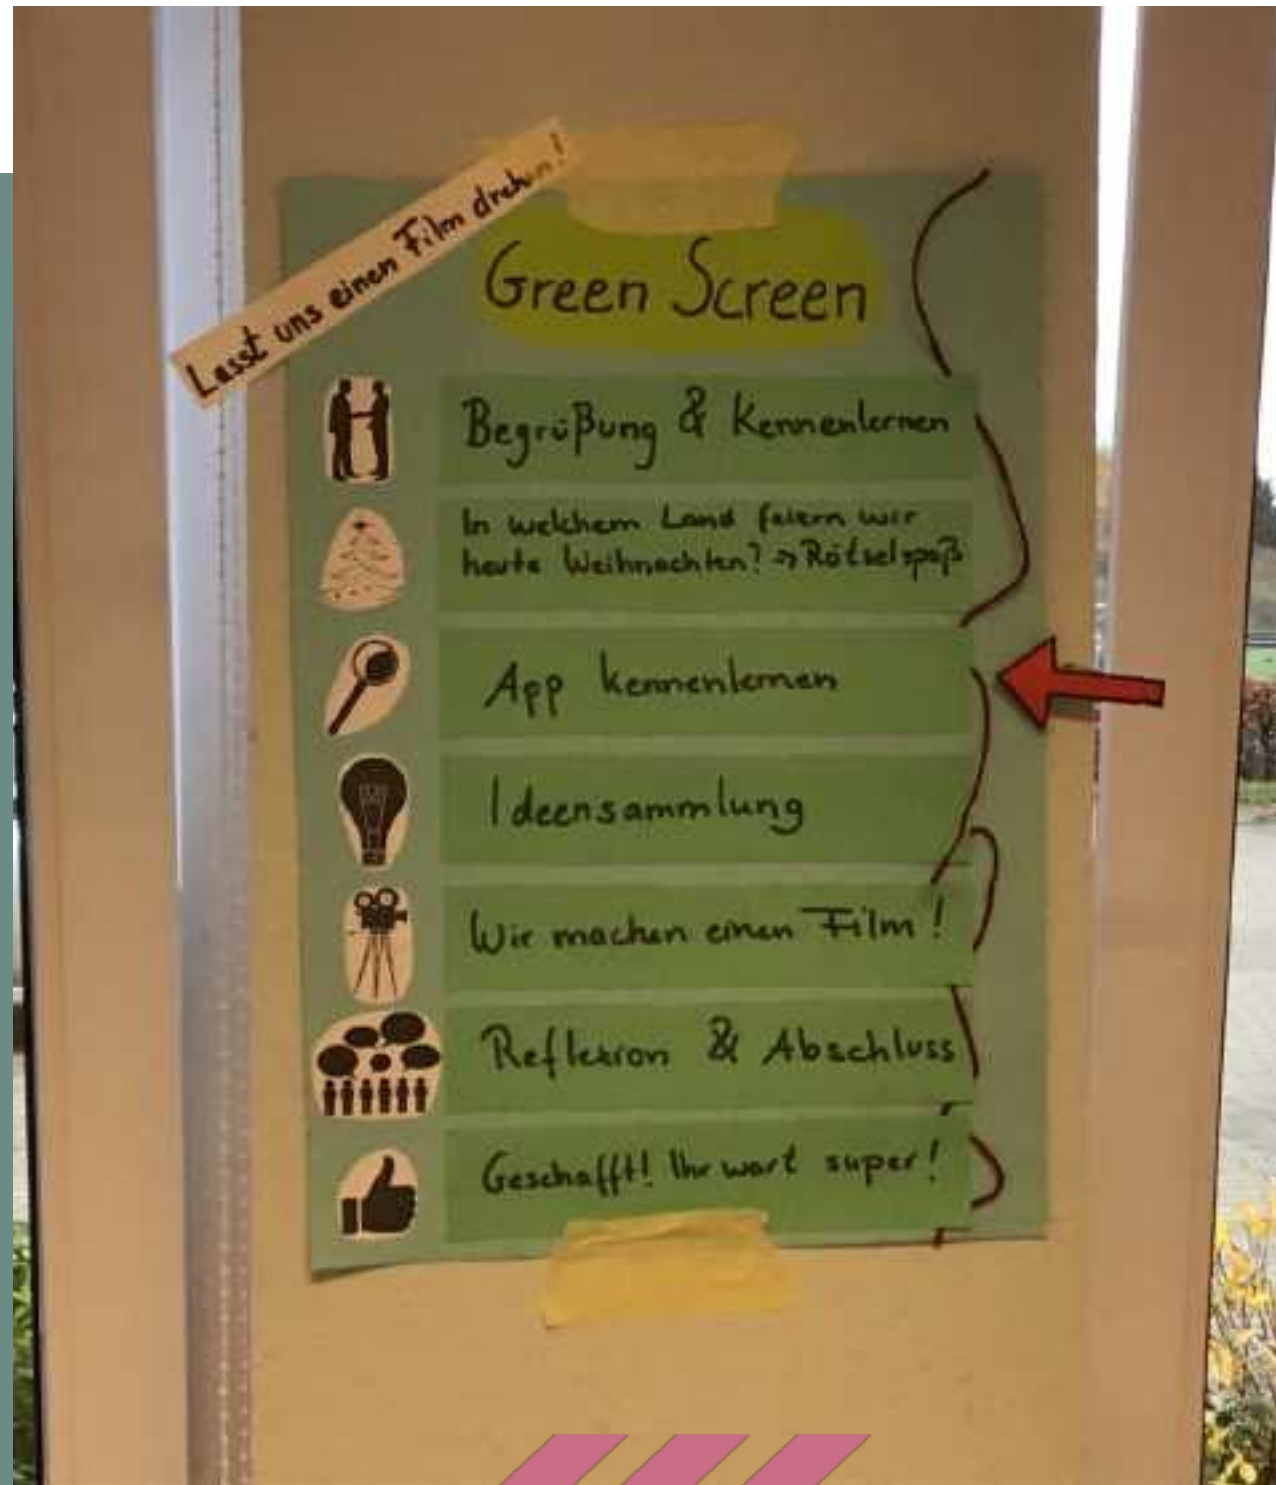 Lasst uns einen Film drehen!
Green Screen
Begrüßung & Kennenlernen
In welchem Land feiern wir
heute Weihnachten? → Rätselspaß
App kennenlernen
Ideensammlung
Wir machen einen Film!
Reflexion & Abschluss
Geschafft! Ihr wart super!